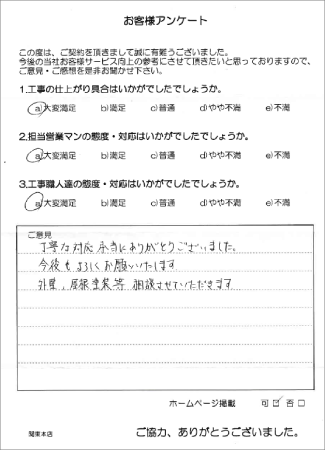 お客様アンケート
この度は、ご契約を頂きまして誠に有難うございました。
今後の当社お客様サービス向上の参考にさせて頂きたいと思っておりますので、
ご意見・ご感想を是非お聞かせ下さい。
1.工事の仕上がり具合はいかがでしたでしょうか。
a)大変満足 b)満足 c)普通 d)やや不満 e)不満
2.担当営業マンの態度・対応はいかがでしたでしょうか。
a)大変満足 b)満足 c)普通 d)やや不満 e)不満
3.工事職人達の態度・対応はいかがでしたでしょうか。
a)大変満足 b)満足 c)普通 d)やや不満 e)不満
ご意見
丁寧な対応 本当にありがとうございました。
今後もよろしくお願いいたします
外壁、屋根塗装等 相談させていただきます
ホームページ掲載 可☑ 否□
関東本店
ご協力、ありがとうございました。